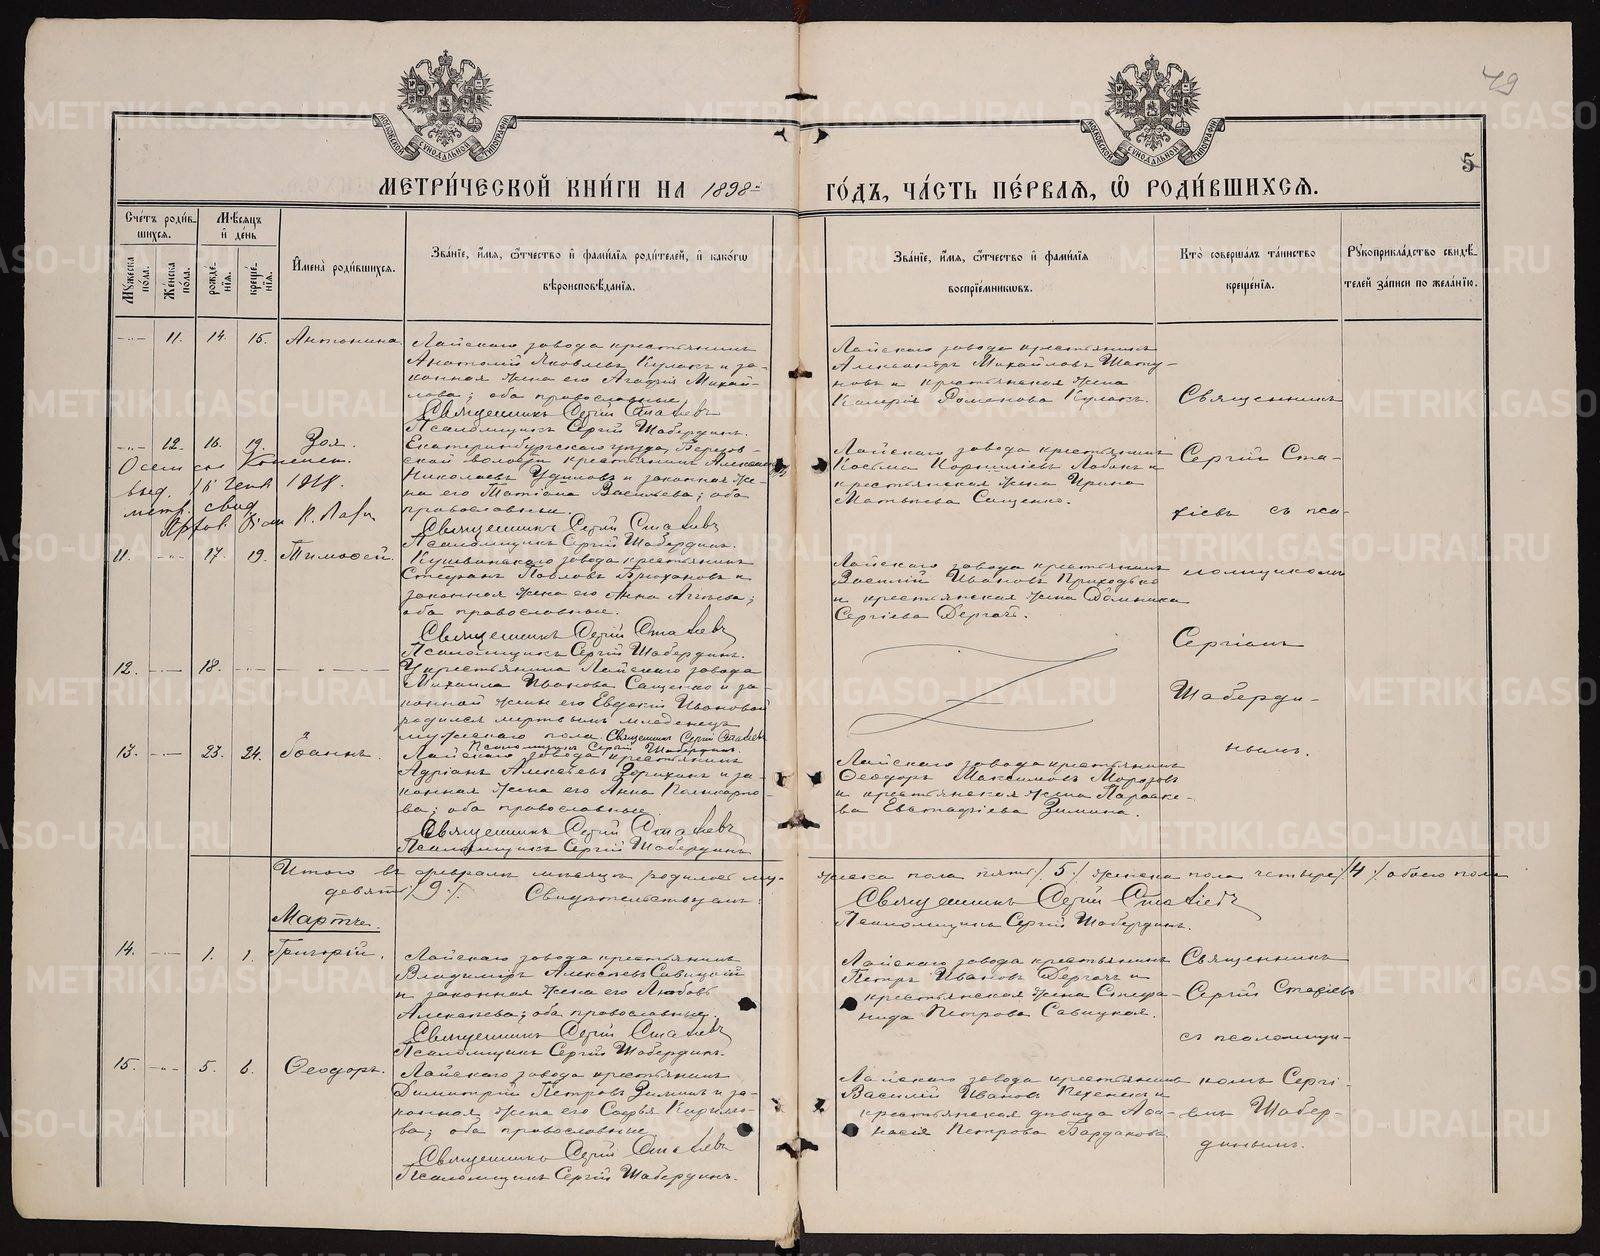 49
5
МЕТРИ́ЧЕСКОЙ КНИ́ГИ НА 1898 ГО́ДЪ, ЧА́СТЬ ПЕ́РВАЯ, Ѿ РОДИ́ВШИХСЯ.
Сче́тъ роди́вшихся.
Мѣ́сяцъ и҆ де́нь
Мꙋ́жеска по́ла.
Же́нска по́ла.
рожде́нїя.
креще́нїя.
И҆мена̀ роди́вшихся.
Зва́нїе, и҆́мя, ѻ҆́тчество и҆ фами́лїя роди́телей, и҆ како́гѡ вѣроисповѣ́данїя.
Зва́нїе, и҆́мя, ѻ҆́тчество и҆ фами́лїя воспрїе́мникѡвъ.
Кто̀ соверша́лъ та́инство креще́нїя.
Рꙋкоприкла́дство свидѣ́телей за́писи по жела́нїю.
11. 14. 15. Антонина
Лайскаго завода крестьянинъ
Анатолій Яковлевъ Кулакъ и за-
конная жена его Агафія Михай-
лова; оба православные
Священникъ Сергій Стафіевъ
Псаломщикъ Сергій Шабердинъ.
Лайскаго завода крестьянинъ
Александръ Михайловъ Шату-
новъ и крестьянская жена
Калерія Романова Кулакъ.
Священникъ
Сергій Ста-
фіевъ съ пса-
ломщикомъ
Сергіемъ
Шаберди-
нымъ.
12. 16. 19. Зоя.
Екатеринбургскаго уѣзда, Березов-
ской волости крестьянинъ Александръ
Николаевъ Удиловъ и законная же-
на его Татіана Васильева; оба
православные.
Священникъ Сергій Стафіевъ
Псаломщикъ Сергій Шабердинъ.
Лайскаго завода крестьянинъ
Косьма Корниліевъ Лобанъ и
крестьянская жена Ирина
Матвѣева Сащенко.
выд.
метр. свид.
11. 17. 19. Тимоѳей
Кушвинскаго завода крестьянинъ
Стефанъ Павловъ Брюхановъ и
законная жена его Анна Агѣева;
оба православные.
Священникъ Сергій Стафіевъ
Псаломщикъ Сергій Шабердинъ.
Лайскаго завода крестьянинъ
Василій Ивановъ Приходько
и крестьянская жена Домника
Сергіева Дергачъ.
12. 18.
У крестьянина Лайскаго завода
Михаила Иванова Сащенко и за-
конной жены его Евдокіи Ивановой
родился мертвымъ младенецъ
мужескаго пола. Священникъ Сергій Стафіевъ
Псаломщикъ Сергій Шабердинъ.
13. 23. 24. Іоаннъ.
Лайскаго завода крестьянинъ
Адріанъ Алексѣевъ Зорихинъ и за-
конная жена его Анна Поликарпо-
ва; оба православные
Священникъ Сергій Стафіевъ
Псаломщикъ Сергій Шабердинъ
Лайскаго завода крестьянинъ
Ѳеодоръ Максимовъ Морозовъ
и крестьянская жена Параске-
ва Евстафіева Зимина.
Итого въ февралѣ мѣсяцѣ родилось му-
жеска пола пять /5/ женска пола четыре /4/, обоего пола
девять /9/. Свидѣтельствуемъ:
Священникъ Сергій Стафіевъ
Псаломщикъ Сергій Шабердинъ.
Мартъ.
14. 1. 1. Григорій.
Лайскаго завода крестьянинъ
Владимиръ Алексѣевъ Савицкій
и законная жена его Любовь
Алексѣева; оба православные.
Священникъ Сергій Стафіевъ
Псаломщикъ Сергій Шабердинъ.
Лайскаго завода крестьянинъ
Петръ Ивановъ Дергачъ и
крестьянская жена Стефа-
нида Петрова Савицкая.
Священникъ
Сергій Стафіевъ
съ псаломщи-
комъ Сергі-
емъ Шабер-
динымъ.
15. 5. 6. Ѳеодоръ.
Лайскаго завода крестьянинъ
Димитрій Петровъ Зиминъ и за-
конная жена его Софья Кирило-
ва; оба православные
Священникъ Сергій Стафіевъ
Псаломщикъ Сергій Шабердинъ.
Лайскаго завода крестьянинъ
Василій Ивановъ
крестьянская дѣвица Аѳа-
насія Петрова Бардакова
METRIKI.GASO-URAL.RU